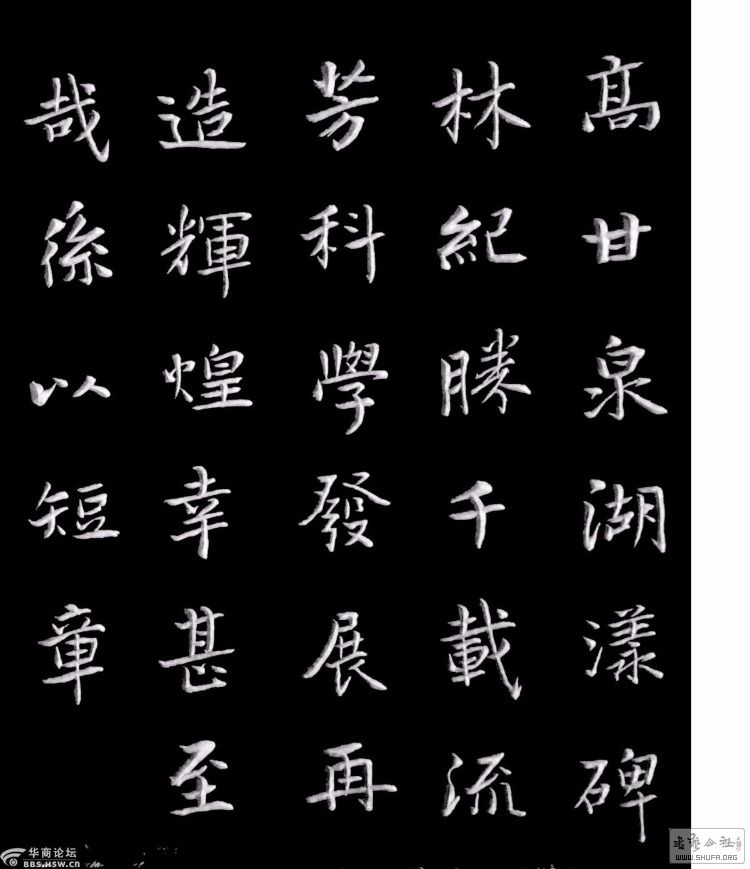 高甘泉湖漾碑
林紀勝千載流
芳科學發展再
造輝煌幸甚至
哉係以短章
华商论坛
BBS.HSW.CN
WWW.SHUFA.ORG